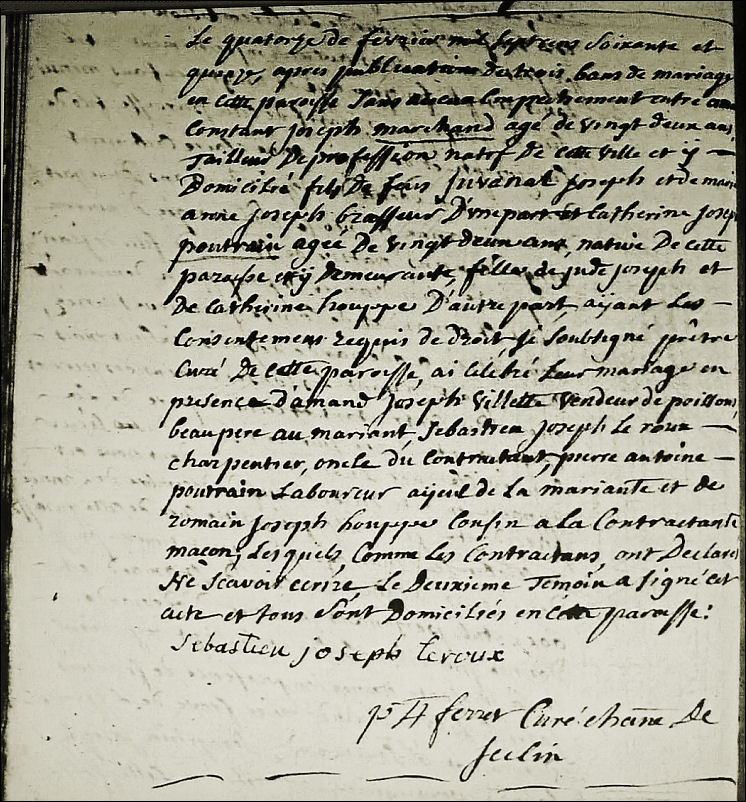 Le quatorze de fevrier mil sept cens soixante et
quinze, apres publication de trois bans de mariage
en cette paroisse sans aucun Empechement entre
Constant joseph marchand agé de vingt deux ans,
Tailleur De profession natif De cette ville et y —
Domicilié fils De feus juvanal joseph et de marie
anne joseph brasseur D'une part et Catherine josep
poutrain agée De vingt deux ans, native De cette
paroisse et y Demeurante, fille de jude joseph et
De Catherine houppe D'autre part, aijant Les —
Consentemens requis de droit, je soubsigné prêtre
Curé De cette paroisse, ai Célébré Leur mariage en
presence D'amand joseph villette vendeur de poissons,
beau pere au mariant, Sebastien joseph Le roux —
charpentier, oncle du Contractant, pierre antoine —
poutrain Laboureur aijeul de La mariante et de
romain joseph houppe Cousin a la Contractante
macon, Lesquels, Comme Les Contractans, ont Declaré
Ne Scavoir ecrire, Le Deuxieme Temoin a signé cet
acte et tous sont Domiciliés en cette paroisse:
Sebastien joseph leroux
ferret Curé chãne De
Seclin